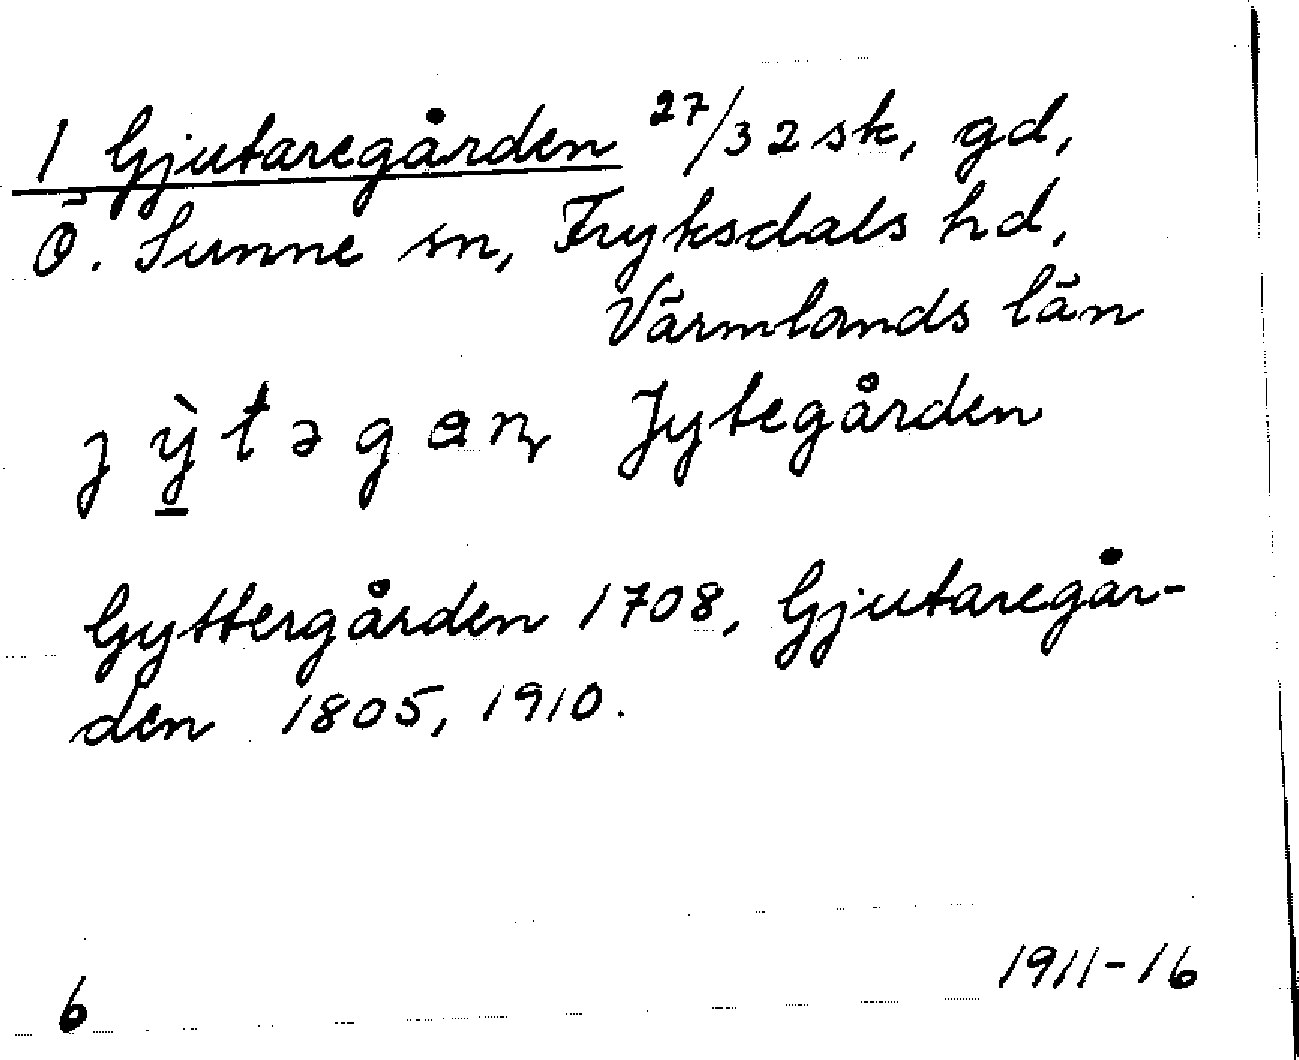 1 Gjutaregården 27/32 sk, gd,
Ö. Sunne sn, Fryksdals hd,
Värmlands län
Jytegården
Gyttergården 1708, Gjutaregår-
den 1805, 1910.
1911-16
6